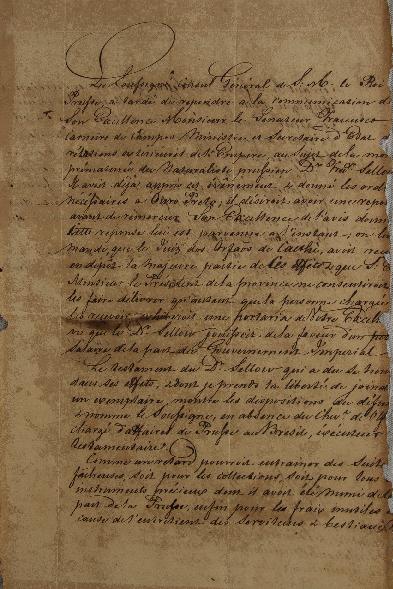 Le Soussigné Consul Général de S. M. le Roi
Prusse, a tardé de repondre a la communication de
Son Excellence Monsieur le Senateur Francisco
Carneiro de Campos Ministre et Secretaire d'Etat d
relations exterieures de l'Empire, au sujet de la mor
prematurée du Naturaliste prussien Dr. Fred. Sellow
Il avait déja appris cet évènement & donné les ord
nécéssaires à Ouro Preto; il désiroit avoir une repon
avant de remercier Son Excellence de l'avis donn
Cette reponse lui est parvenue a l'instant; on lui
mande, que le Juiz dos Orfaõs de Caethé, avoit reçu
en dépôt la majeure partie de les effets & que S. E
Monsieur le Président de la province ne consentiroit
les faire délivrer qu'autant que la personne chargée
recevoir une portaria de Votre Excelle
que le Dr. Sellow jouissoit de la faveur d'un
salaire de la part du Gouvernement Imperial.
Le testament du Dr. Sellow qui a du se trou
dans ses effets, & dont je prends la liberté de
un exemplaire, montre les dispositions du défun
& nomme le Soussigné, en absence du Chev. de
chargé d'affaires de Prusse au Bresil, exécuteur
testamentaire.
Comme un retard pourroit entrainer des suites
fâcheuses, soit pour les collections, soit pour les
instruments précieux dont il avoit été muni de la
part de la Prusse, enfin pour les frais inutiles
cause de l'entretient des serviteurs & bestiaux